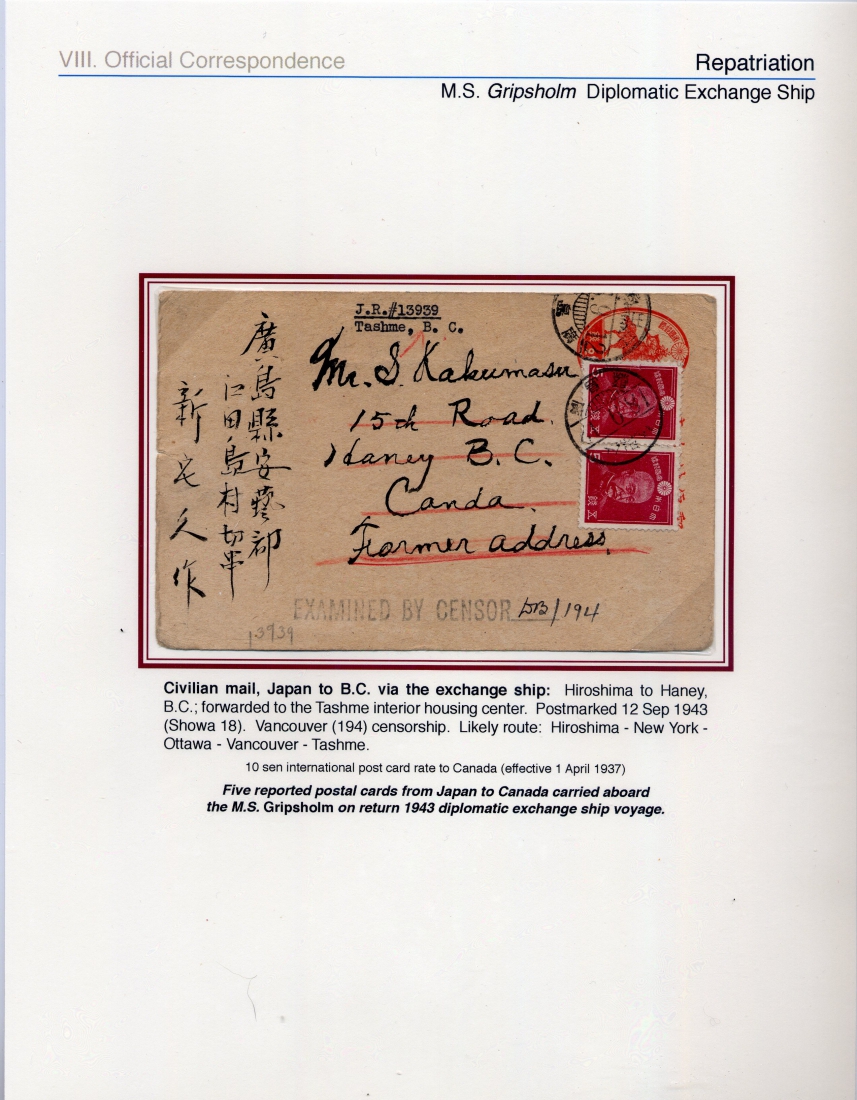 VIII. Official Correspondence
Repatriation
M.S. Gripsholm Diplomatic Exchange Ship
J.R.#13939
Tashme, B. C.
Mr. S. Kakumasu
15th Road.
Haney B.C.
Canda.
Former address.
廣島縣安藝郡
江田島村切串
新宅久作
EXAMINED BY CENSOR DB/194
13939
Civilian mail, Japan to B.C. via the exchange ship: Hiroshima to Haney,
B.C.; forwarded to the Tashme interior housing center. Postmarked 12 Sep 1943
(Showa 18). Vancouver (194) censorship. Likely route: Hiroshima - New York -
Ottawa - Vancouver - Tashme.
10 sen international post card rate to Canada (effective 1 April 1937)
Five reported postal cards from Japan to Canada carried aboard
the M.S. Gripsholm on return 1943 diplomatic exchange ship voyage.